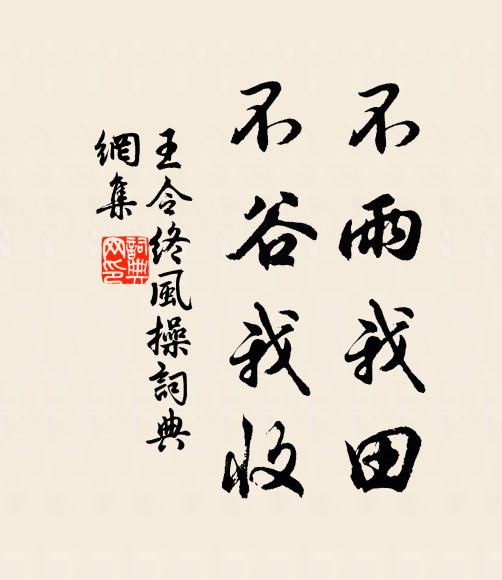 不雨我田
不谷我收
王令終風操詞典
網集
詞典
网印